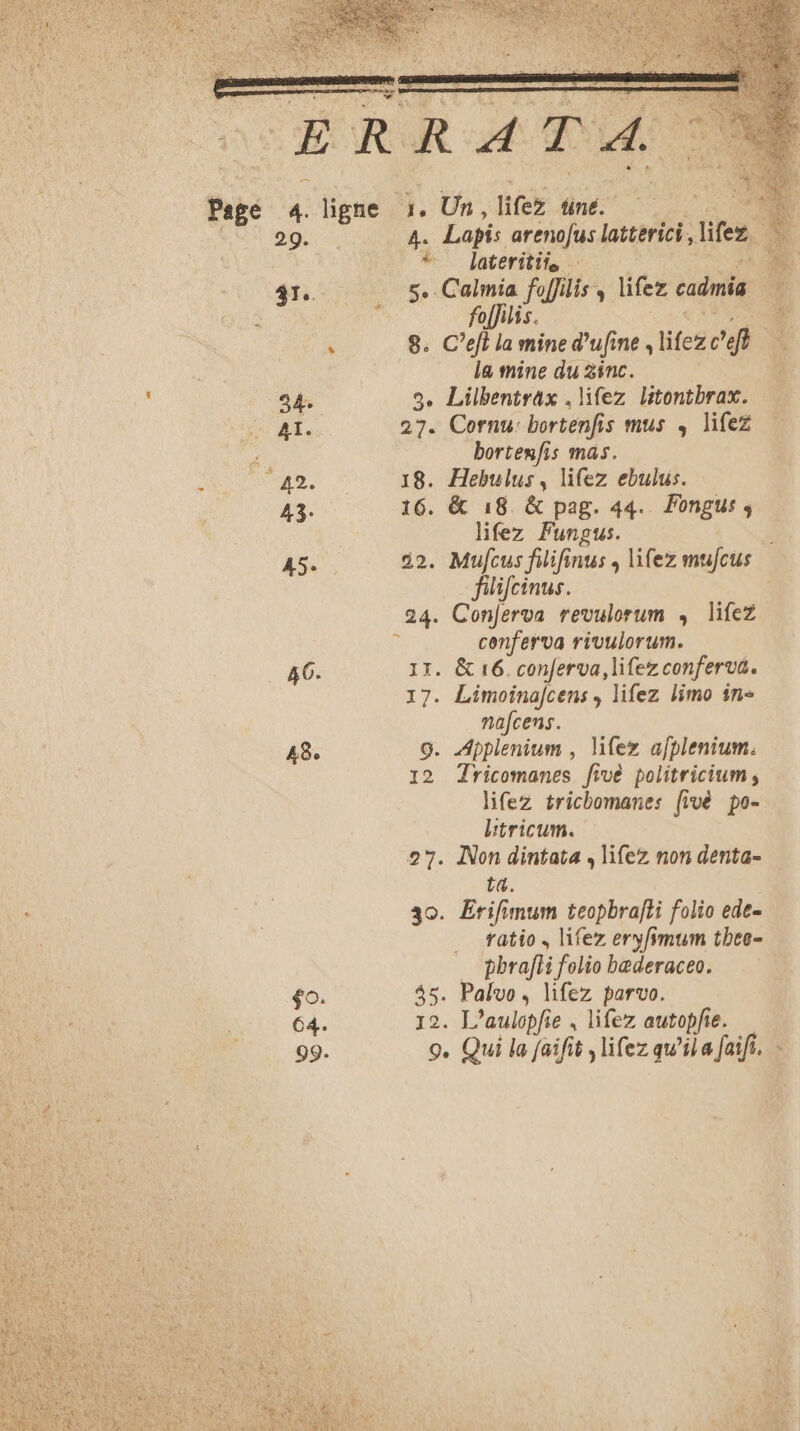 ERRATA.
Page 4. ligne 1. Un, liſez une.
29. 4. Lapis arenoſus latterici, liſez
lateritii,
31. 5. Calmia foſſilis, liſez cadmia
foſſilis.
8. C'eſt la mine d'uſine, liſez c'eſt
la mine du zinc.
34. 3. Lilbentrax, liſez litontbrax.
41. 27. Cornu: hortenſis mus, liſez
hortenſis mas.
42. 18. Hebulus, liſez ebulus.
43. 16. & 18 & pag. 44. Fongus,
liſez Fungus.
45. 22. Muſcus filiſinus, liſez muſcus
filiſcinus.
24. Conferva revulorum, liſez
conferva rivulorum.
46. 11. & 16. conferva, liſez confervá.
17. Limoinaſcens, liſez limo in-
naſcens.
48. 9. Applenium, liſez aſplenium.
12 Tricomanes ſivè politricium,
liſez trichomanes ſivè po-
litricum.
27. Non dintata, liſez non denta-
ta.
30. Eriſimum teophraſti folio ede-
ratio, liſez eryſimum theo-
phraſti folio hæderaceo.
50. 35. Palvo, liſez parvo.
64. 12. L'aulopſie, liſez autopſie.
99. 9. Qui la ſaiſit, liſez qu'il a ſaiſi.